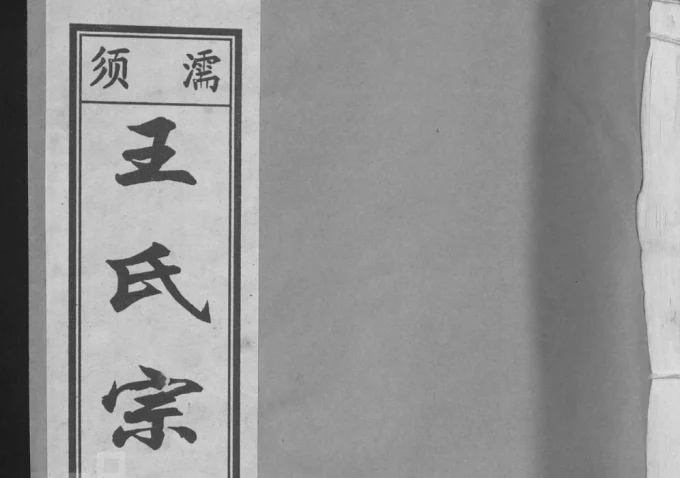 濡须
王氏宗